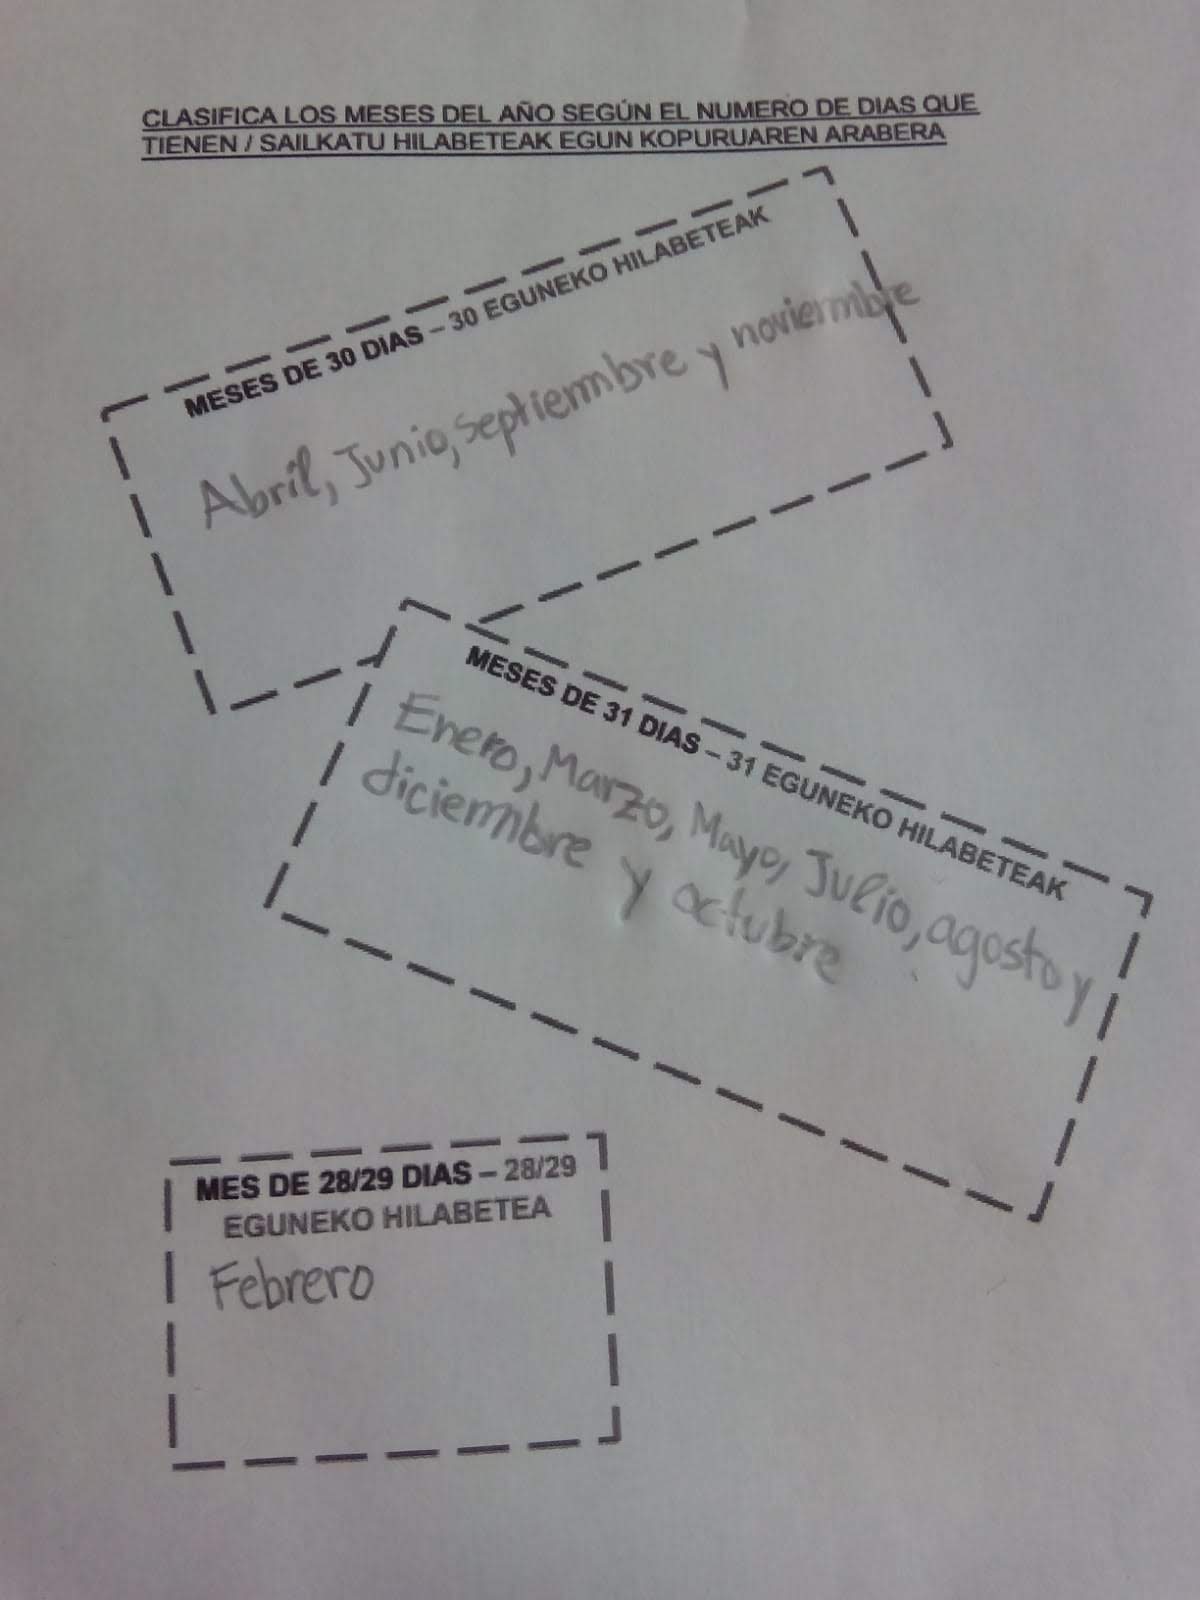 CLASIFICA LOS MESES DEL AÑO SEGÚN EL NUMERO DE DIAS QUE
TIENEN / SAILKATU HILABETEAK EGUN KOPURUAREN ARABERA
MESES DE 30 DIAS – 30 EGUNEKO HILABETEAK
Abril, Junio, septiembre y noviembre
MESES DE 31 DIAS – 31 EGUNEKO HILABETEAK
Enero, Marzo, Mayo, Julio, agosto y
diciembre y octubre
MES DE 28/29 DIAS – 28/29
EGUNEKO HILABETEA
Febrero